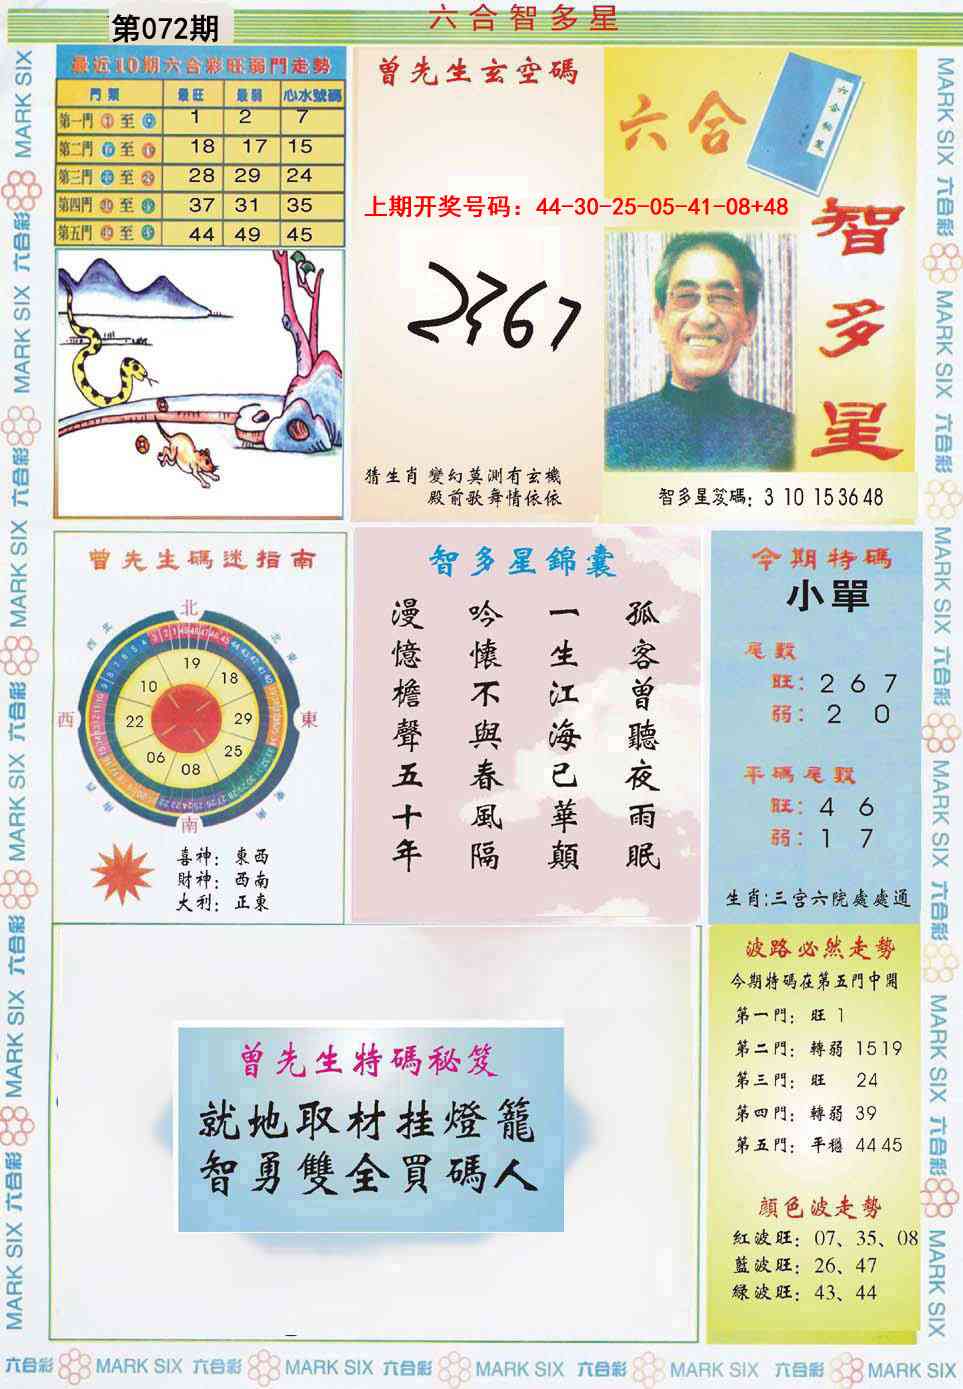 六合智多星
第072期
最近10期六合彩旺弱門走勢
門類 最旺 最弱 心水號碼
第一門 至 1 2 7
第二門 至 18 17 15
第三門 至 28 29 24
第四門 至 37 31 35
第五門 至 44 49 45
曾先生玄空碼
上期开奖号码：44-30-25-05-41-08+48
2367
猜生肖 變幻莫測有玄機
殿前歌舞情依依
六合
智多星
智多星笈碼：3 10 15 36 48
曾先生碼迷指南
北
西北
北東
西
東
西南
東南
南
19
18
29
25
08
06
22
10
喜神：東西
財神：西南
大利：正東
智多星錦囊
孤客曾聽夜雨眠
一生江海已華顛
吟懷不與春風隔
漫憶檐聲五十年
今期特碼
小單
尾數
旺：2 6 7
弱：2 0
平碼尾數
旺：4 6
弱：1 7
生肖:三宫六院處處通
曾先生特碼秘笈
就地取材挂燈籠
智勇雙全買碼人
波路必然走勢
今期特碼在第五門中開
第一門：旺 1
第二門：轉弱 15 19
第三門：旺 24
第四門：轉弱 39
第五門：平穩 44 45
顏色波走勢
紅波旺：07、35、08
藍波旺：26、47
綠波旺：43、44
六合彩 MARK SIX 六合彩 MARK SIX 六合彩 MARK SIX 六合彩 MARK SIX 六合彩 MARK SIX